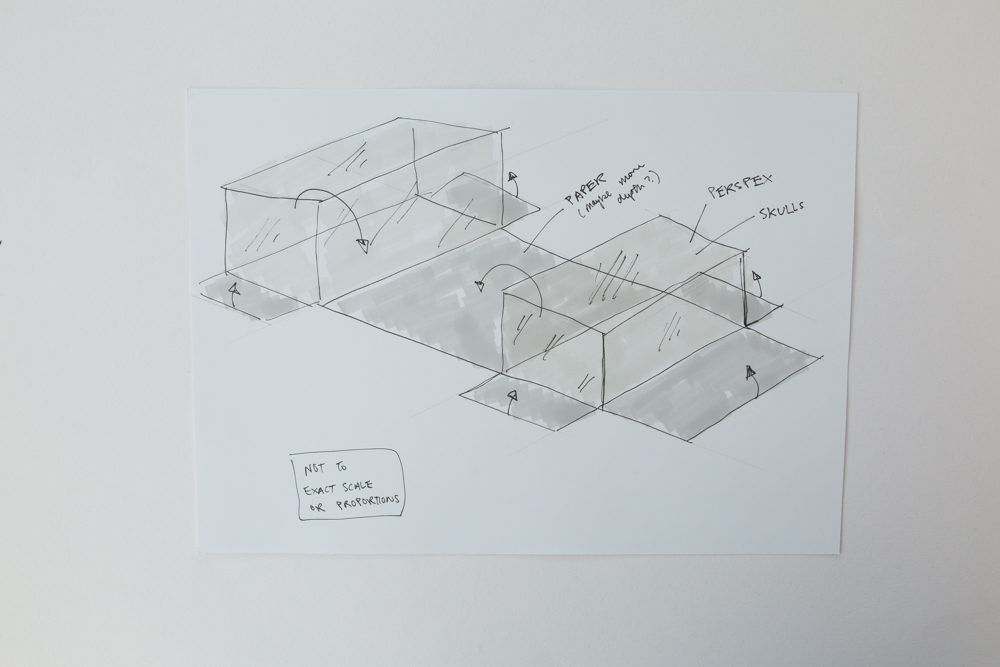 PAPER
(maybe more
depth?)
PERSPEX
SKULLS
NOT TO
EXACT SCALE
OR PROPORTIONS